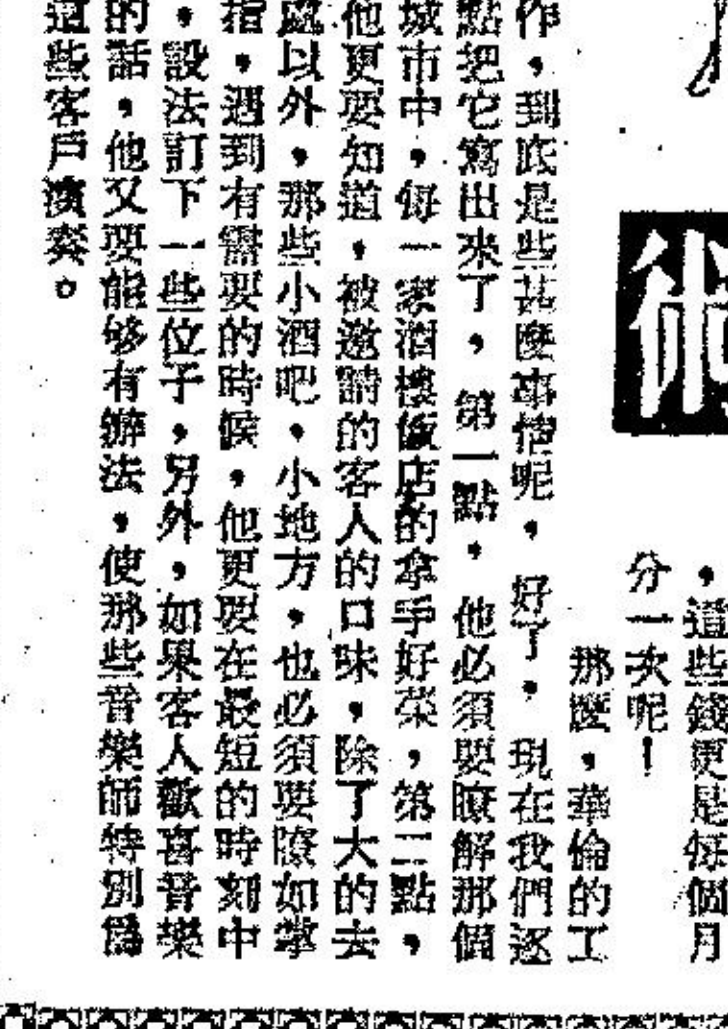 術
，這些錢更是每個月
分一次呢！
那麼，華倫的工
作，到底是些甚麼事情呢，好了，現在我們逐
點把它寫出來了，第一點，他必須要瞭解那個
城市中，每一家酒樓飯店的拿手好菜，第二點，
他更要知道，被邀請的客人的口味，除了大的去
處以外，那些小酒吧，小地方，也必須要瞭如掌
指，遇到有需要的時候，他更要在最短的時刻中
，設法訂下一些位子，另外，如果客人歡喜音樂
的話，他又要能够有辦法，使那些音樂師特別爲
這些客戶演奏。